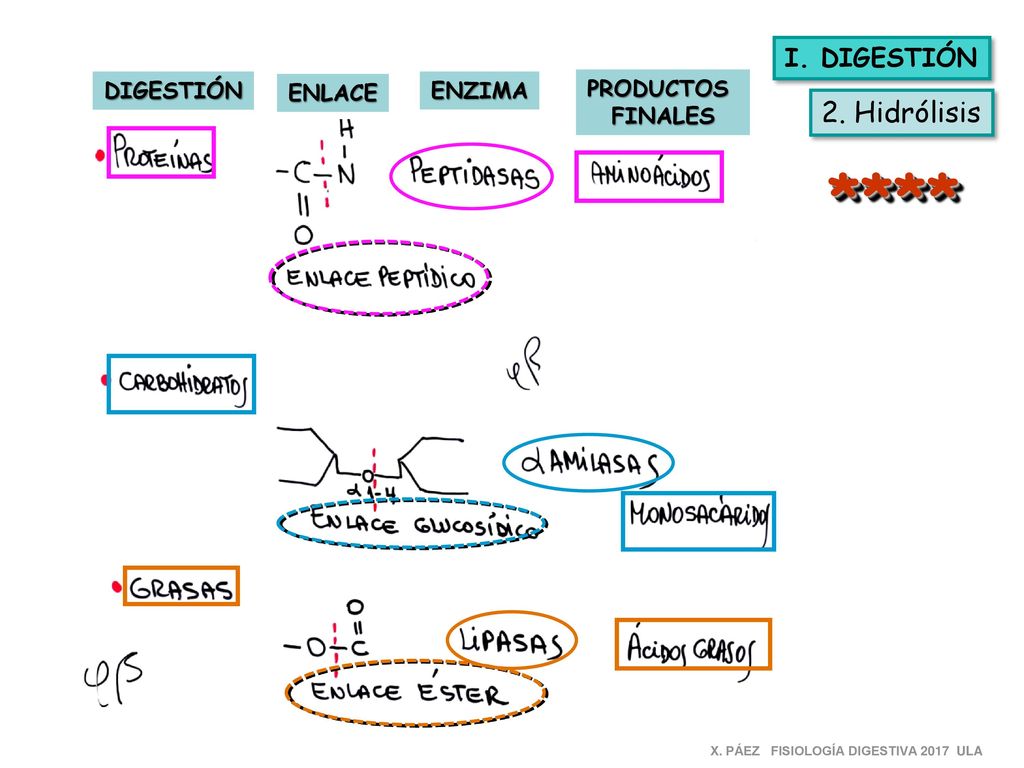 I. DIGESTIÓN
2. Hidrólisis
****
DIGESTIÓN
ENLACE
ENZIMA
PRODUCTOS
FINALES
PROTEÍNAS
H
-C-N
O
ENLACE PEPTÍDICO
PEPTIDASAS
AMINOÁCIDOS
CARBOHIDRATOS
O
α 1-4
ENLACE GLUCOSÍDICO
α AMILASAS
MONOSACÁRIDOS
GRASAS
O
-O-C
ENLACE ÉSTER
LIPASAS
ÁCIDOS GRASOS
X. PÁEZ FISIOLOGÍA DIGESTIVA 2017 ULA